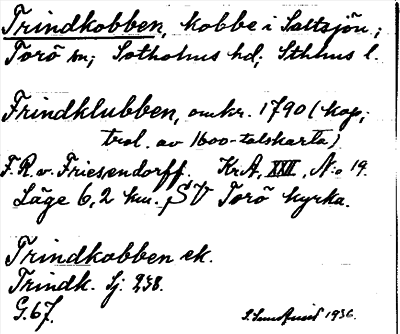 Trindkobben, kobbe i Saltsjön;
Torö sn; Sotholms hd; Sthlms l.
Frindklubben, omkr. 1790 (kop;
trol. av 1600-talskarta)
F. R. v. Friesendorff. KrA, XXII, N:o 19.
Läge 6,2 km. SV Torö kyrka.
Trindkobben ek.
Trindk. Sj. 238.
G. 67.
1936.